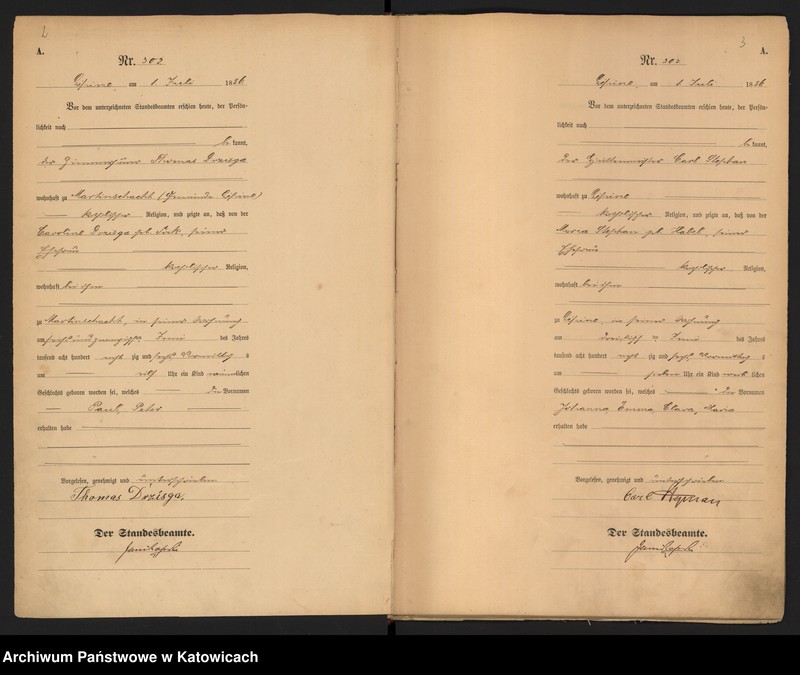 2
A.
Nr. 302
am 1 Juli 1886
Vor dem unterzeichneten Standesbeamten erschien heute, der Persön-
lichkeit nach
be kannt,
der Thomas Drzisga
wohnhaft zu Martinschacht (Gemeinde
katholischer Religion, und zeigte an, daß von der
Caroline Drzisga geb. seiner
Ehefrau
katholischer Religion,
wohnhaft bei ihm
zu Martinschacht, in seiner Wohnung
am sechsundzwanzigsten Juni des Jahres
tausend acht hundert acht zig und sechs Vormittags
um Uhr ein Kind männlichen
Geschlechts geboren worden sei, welches die Vornamen
Paul, Peter
erhalten habe
Vorgelesen, genehmigt und unterschrieben
Thomas Drzisga.
Der Standesbeamte.
3
A.
Nr. 303
am 1 Juli 1886
Vor dem unterzeichneten Standesbeamten erschien heute, der Persön-
lichkeit nach
be kannt,
der Hüttenmeister Carl Stephan
wohnhaft zu
katholischer Religion, und zeigte an, daß von der
Maria Stephan geb. seiner
Ehefrau
katholischer Religion,
wohnhaft bei ihm
zu in seiner Wohnung
am dreißigsten Juni des Jahres
tausend acht hundert acht zig und sechs Vormittags
um sieben Uhr ein Kind weib lichen
Geschlechts geboren worden sei, welches die Vornamen
Johanna, Emma, Clara, Maria
erhalten habe
Vorgelesen, genehmigt und unterschrieben
Carl Stephan
Der Standesbeamte.
Archiwum Państwowe w Katowicach